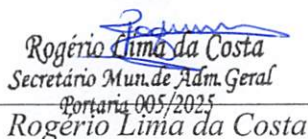 Rogério Lima da Costa
Secretário Mun.de Adm. Geral
Portaria 005/2025
Rogério Lima da Costa